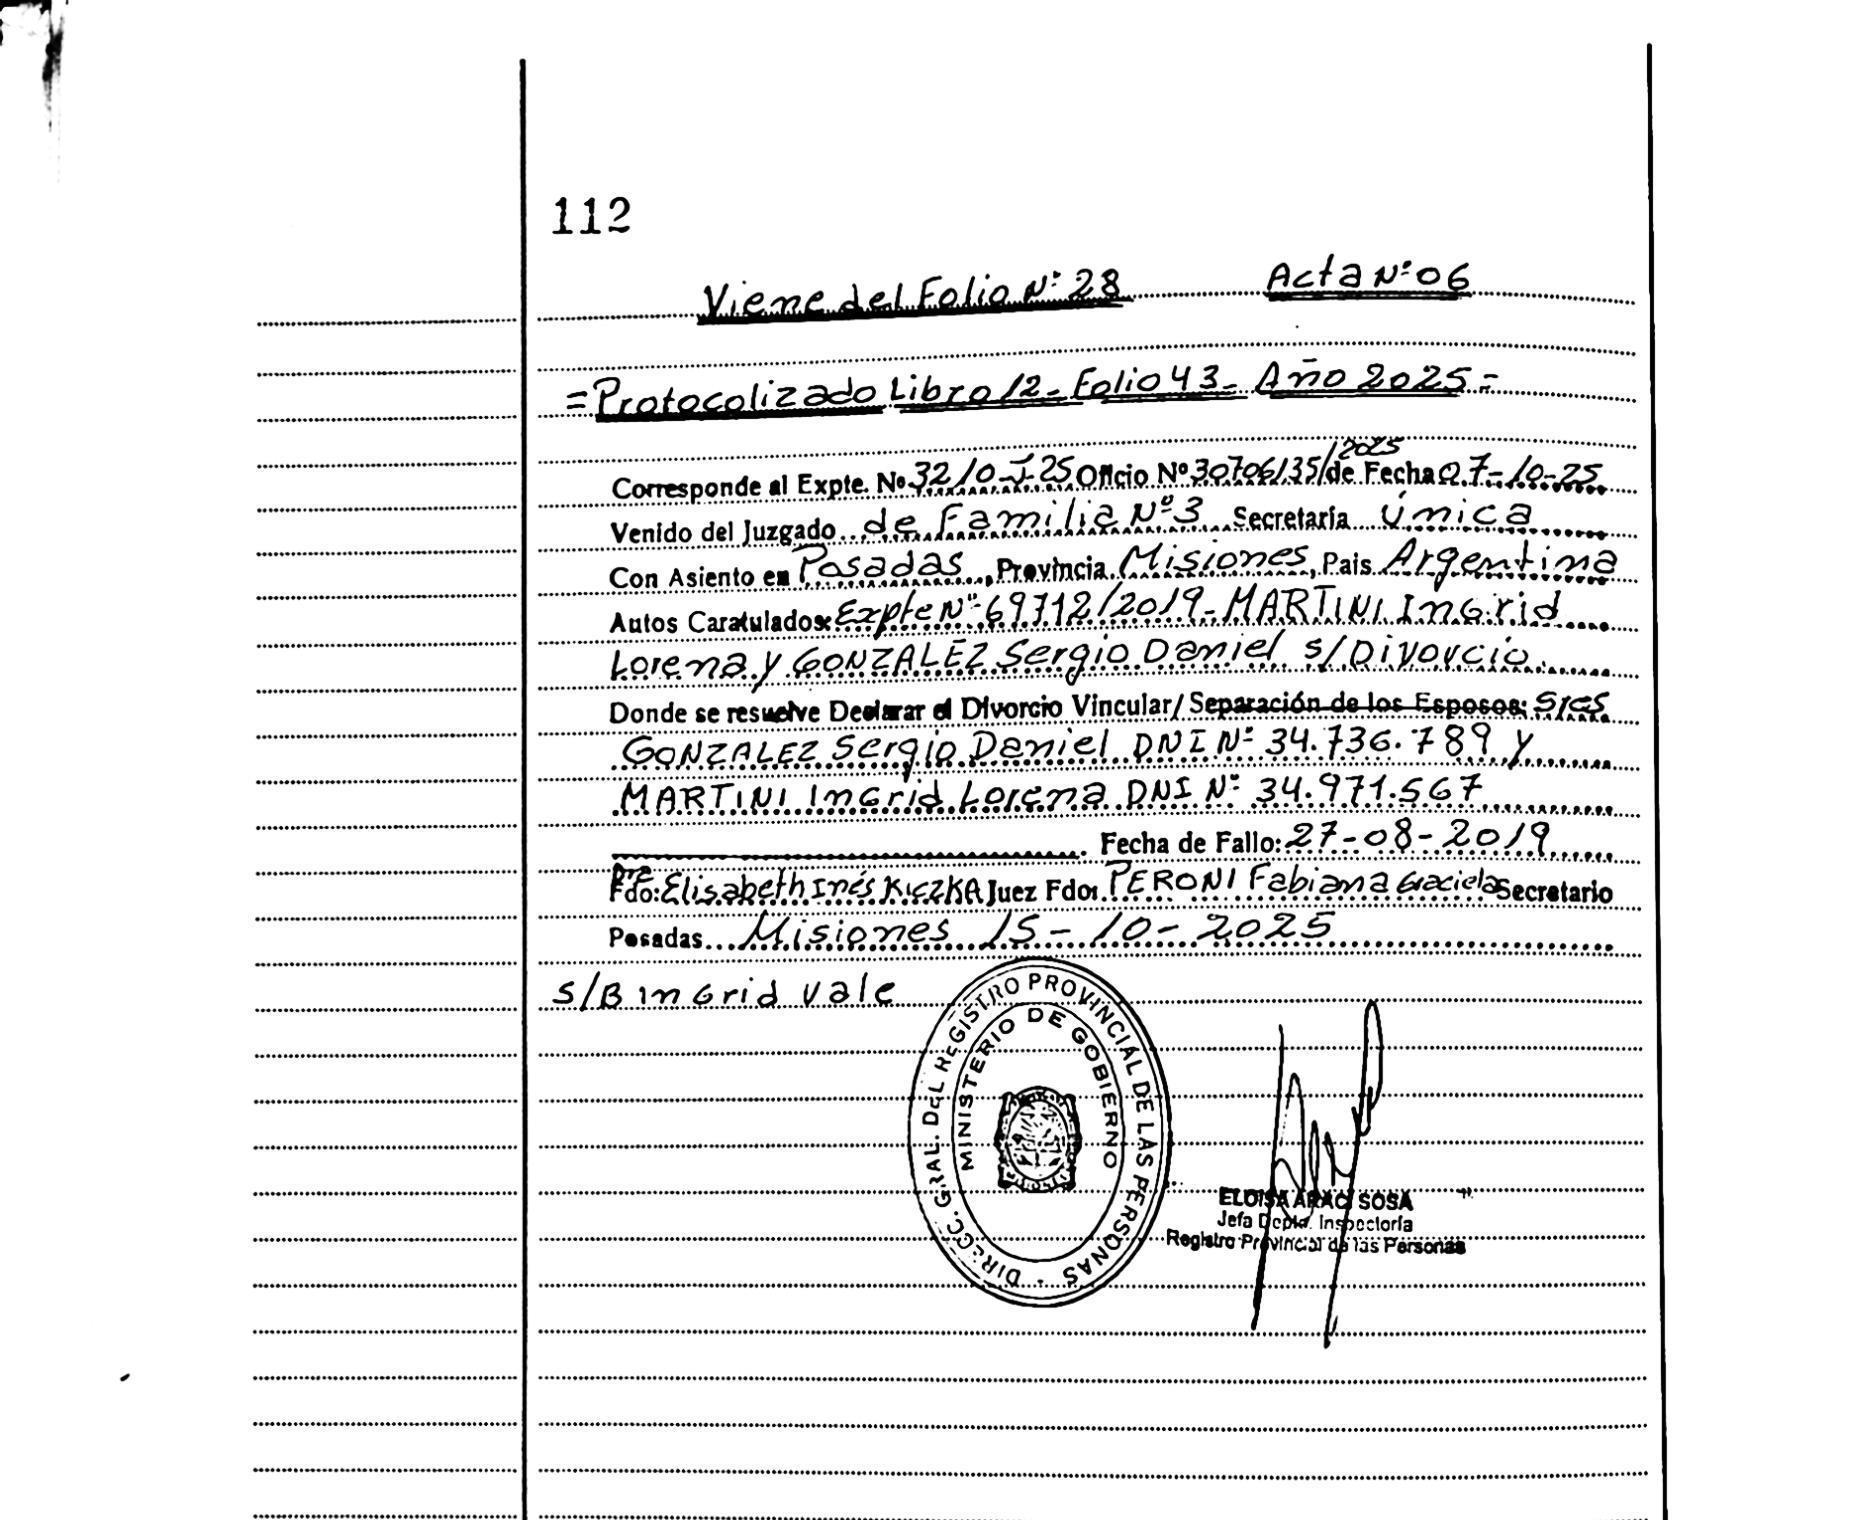 112
Viene del Folio Nº 28 Acta Nº 06
= Protocolizado Libro 12 - Folio 43 - Año 2025 -
2025
Corresponde al Expte. Nº 32/0-J-25 Oficio Nº 30706135/de Fecha 07-10-25
Venido del Juzgado de Familia Nº 3 Secretaría Única
Con Asiento en Posadas, Provincia Misiones, Pais Argentina
Autos Caratulados: Expte Nº 69712/2019 - MARTINI Ingrid
Lorena y GONZALEZ Sergio Daniel s/Divorcio
Donde se resuelve Declarar el Divorcio Vincular/ Separación de los Esposos: Sres
GONZALEZ Sergio Daniel DNI Nº 34.736.789 y
MARTINI Ingrid Lorena DNI Nº 34.971.567
Fecha de Fallo: 27-08-2019
Fdo: Dra Elisabeth Inés KICZKA Juez Fdo: PERONI Fabiana Graciela Secretario
Posadas Misiones 15-10-2025
s/B Ingrid Vale
DIRECC. GRAL. DEL REGISTRO PROVINCIAL DE LAS PERSONAS
MINISTERIO DE GOBIERNO
ELOISA ARACI SOSA
Jefa Depto. Inspectoría
Registro Provincial de las Personas